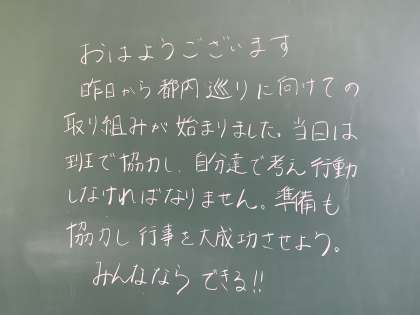 おはようございます
昨日から都内巡りに向けての
取り組みが始まりました。当日は
班で協力し、自分達で考え行動
しなければなりません。準備も
協力し行事を大成功させよう。
みんなならできる!!